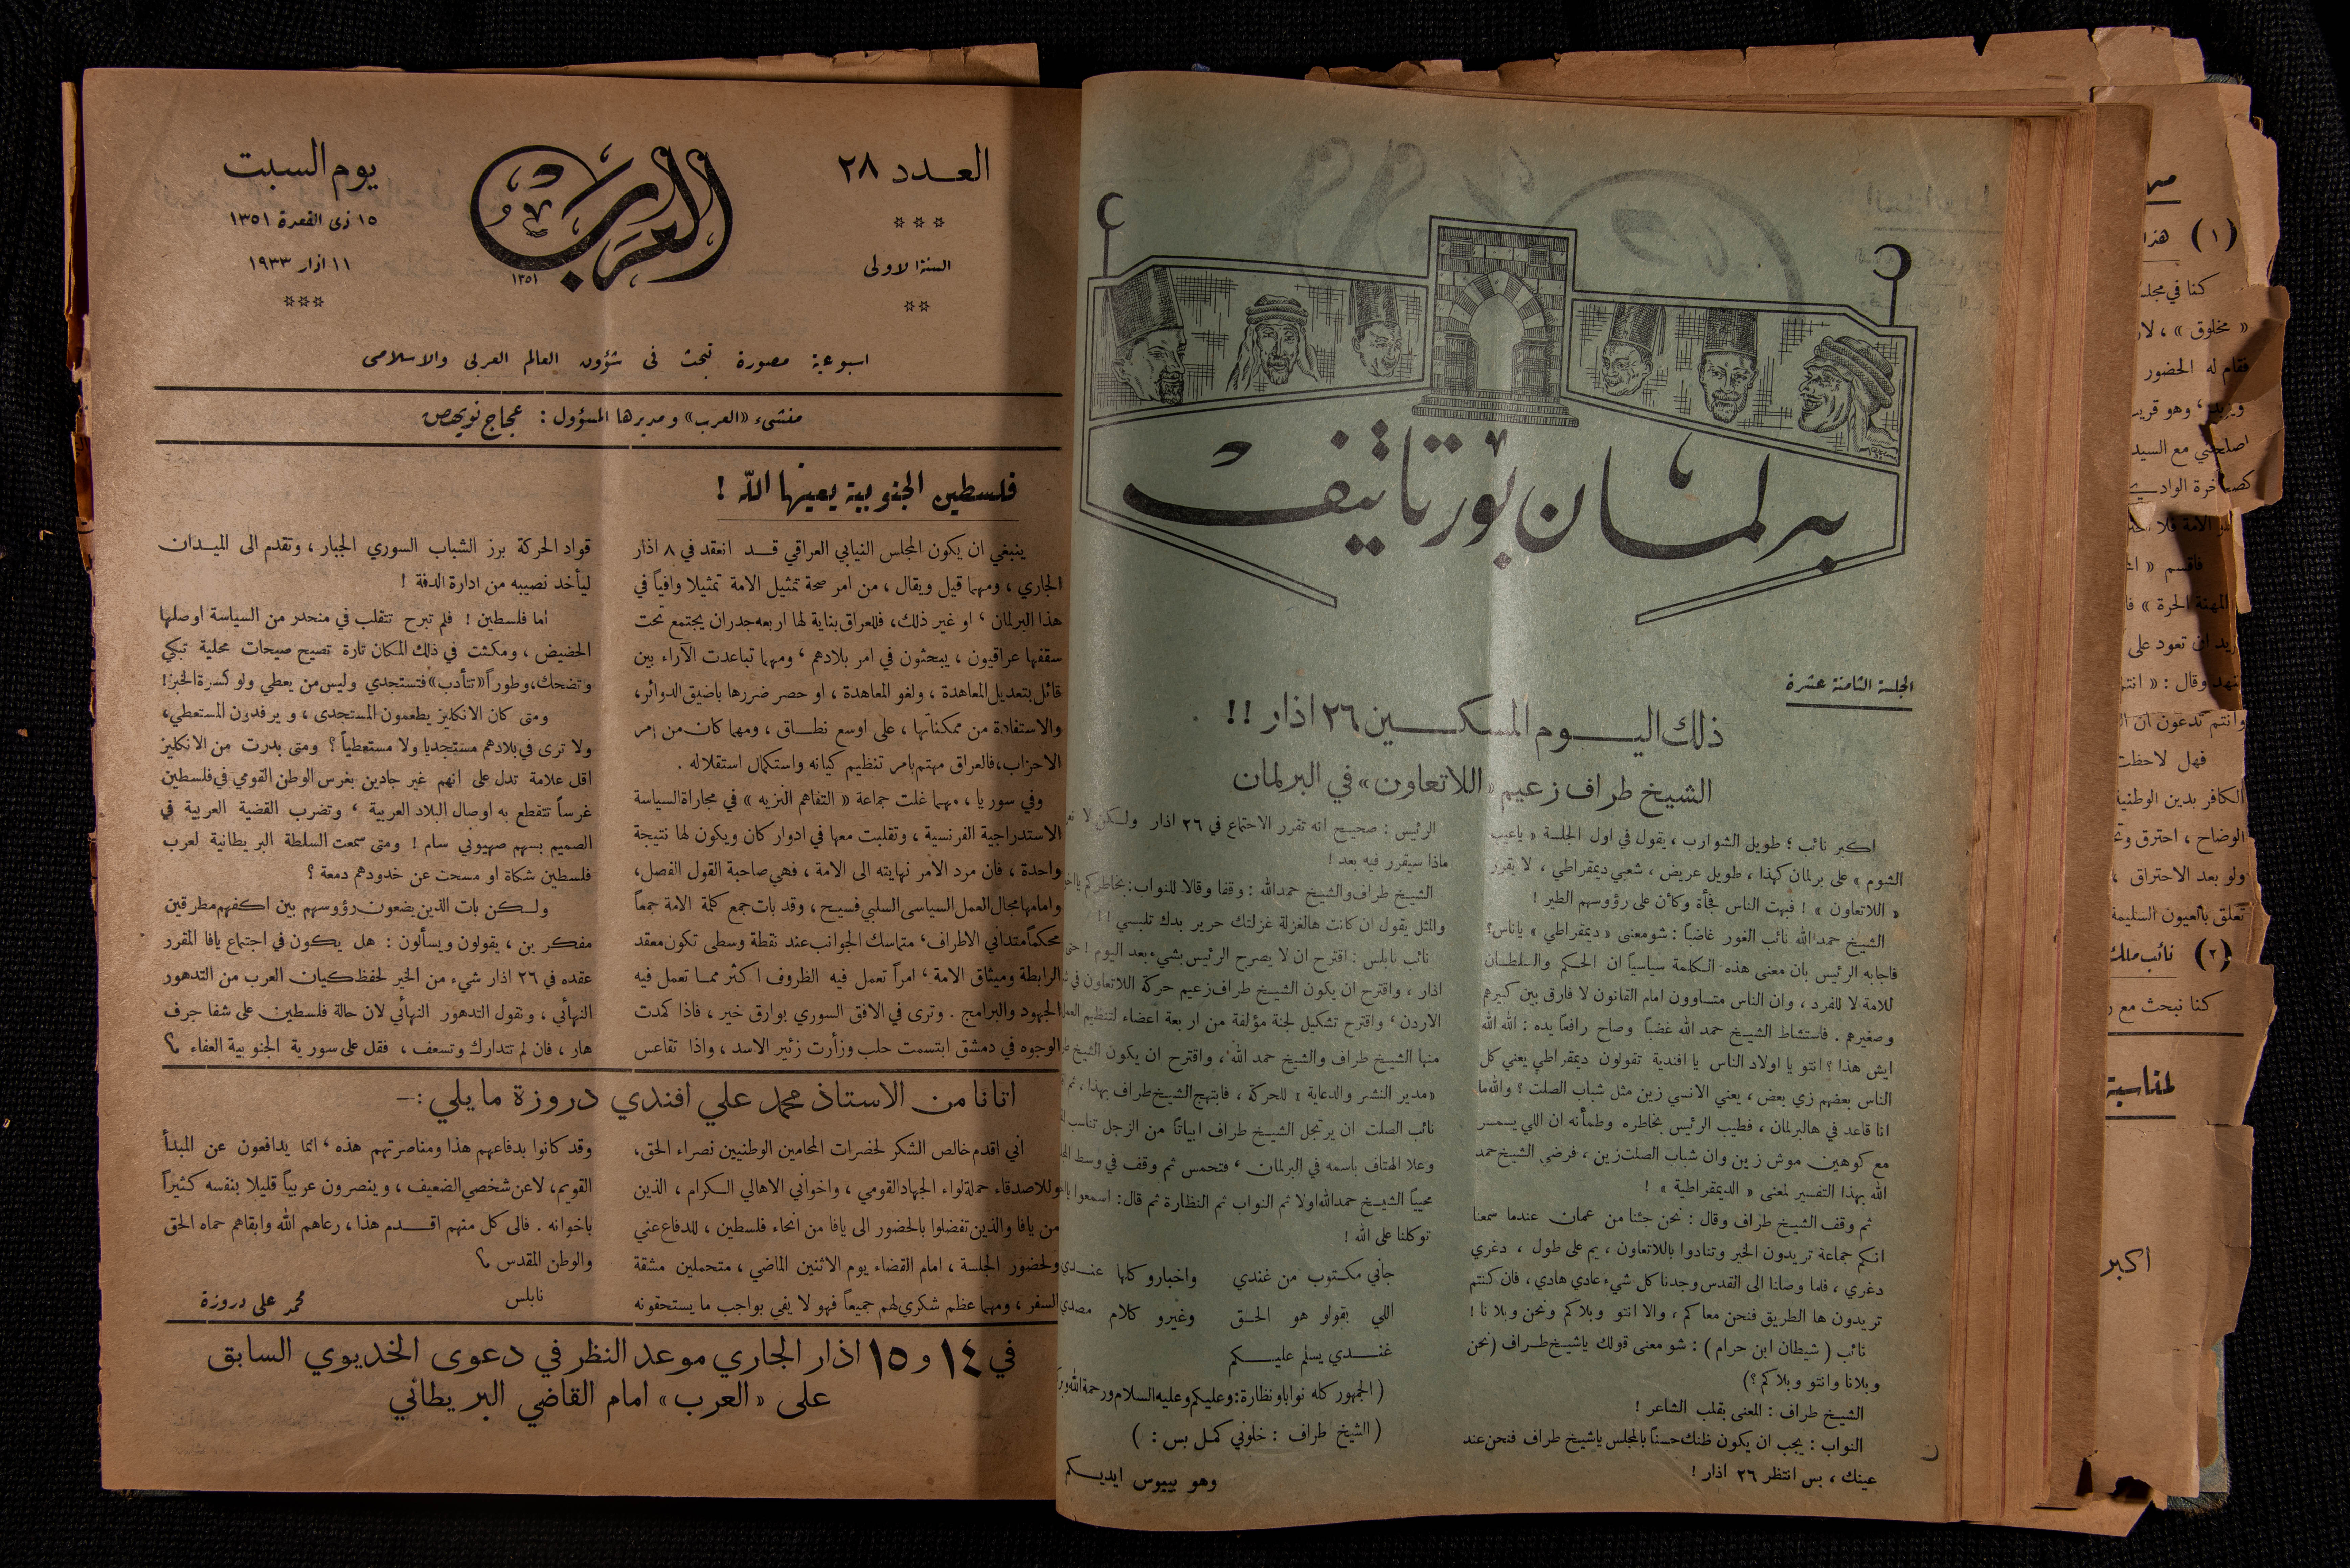 (١) هذا
كنا في مجلس
« مخلوق » ، لا
فقام له الحضور
وهو قريب
اصلحني مع السيد
فاقسم «
المهنة الحرة » فا
ان تعود على
وقال : « انتم
وانتم تدعون ان
فهل لاحظت
الكافر بدين الوطنية
الوضاح ، احترق
ولو بعد الاحتراق ،
تعلق بالعيون السليمة
(٢) نائب ملك
كنا نبحث مع
لمناسبة
اكبر
برلمان بورتاتيف
الجلسة الثامنة عشرة
ذلك اليوم المسكين ٢٦ اذار !!
الشيخ طراف زعيم «اللاتعاون» في البرلمان
اكبر نائب ؛ طويل الشوارب ، يقول في اول الجلسة « ياعيب
الشوم » على برلمان كهذا ، طويل عريض ، شعبي ديمقراطي ، لا يقرر
« اللاتعاون » ! فبهت الناس فجأة وكأن على رؤوسهم الطير !
الشيخ حمدالله نائب الغور غاضباً : شو معنى « ديمقراطي » ياناس؟
فاجابه الرئيس بان معنى هذه الكلمة سياسياً ان الحكم والسلطان
للامة لا للفرد ، وان الناس متساوون امام القانون لا فارق بين كبيرهم
وصغيرهم . فاستشاط الشيخ حمد الله غضباً وصاح رافعاً يده : الله الله
ايش هذا ؟ انتو يا اولاد الناس يا افندية تقولون ديمقراطي يعني كل
الناس بعضهم زي بعض ، يعني الانسي زين مثل شباب الصلت ؟ والله ما
انا قاعد في هالبرلمان ، فطيب الرئيس بخاطره وطمأنه ان اللي يسمسر
مع كوهين موش زين وان شباب الصلت زين ، فرضي الشيخ حمد
الله بهذا التفسير لمعنى « الديمقراطية » !
ثم وقف الشيخ طراف وقال : نحن جئنا من عمان عندما سمعنا
انكم جماعة تريدون الخير وتنادوا باللاتعاون ، يم على طول ، دغري
دغري ، فلما وصلنا الى القدس وجدنا كل شيء عادي هادي ، فان كنتم
تريدون ها الطريق فنحن معاكم ، والا انتو وبلاكم ونحن وبلانا !
نائب ( شيطان ابن حرام ) : شو معنى قولك ياشيخ طراف (نحن
وبلانا وانتو وبلاكم ؟)
الشيخ طراف : المعنى بقلب الشاعر !
النواب : يجب ان يكون ظنك حسناً بالمجلس ياشيخ طراف فنحن عند
عينك ، بس انتظر ٢٦ اذار !
الرئيس : صحيح انه تقرر الاجتماع في ٢٦ اذار ولكن لا
ماذا سيقرر فيه بعد !
الشيخ طراف والشيخ حمدالله : وقفا وقالا للنواب : بخاطركم
والمثل يقول ان كانت هالغزلة غزلتك حرير بدك تلبسي !!
نائب نابلس : اقترح ان لا يصرح الرئيس بشيء بعد اليوم ! حتى
اذار ، واقترح ان يكون الشيخ طراف زعيم حركة اللاتعاون في
الاردن ، واقترح تشكيل لجنة مؤلفة من اربعة اعضاء لتنظيم
منها الشيخ طراف والشيخ حمد الله ، واقترح ان يكون الشيخ
«مدير النشر والدعاية » للحركة ، فابتهج الشيخ طراف بهذا ، ثم
نائب الصلت ان يرتجل الشيخ طراف ابياتاً من الزجل تناسب
وعلا الهتاف باسمه في البرلمان ، فتحمس ثم وقف في وسط
محيياً الشيخ حمدالله اولا ثم النواب ثم النظارة ثم قال : اسمعوا
توكلنا على الله !
جاني مكتوب من غندي واخبارو كلها عندي
اللي بقولو هو الحق وغيرو كلام مصدي
غندي يسلم عليكم
( الجمهور كله نوابا ونظارة : وعليكم وعليه السلام ورحمة الله
( الشيخ طراف : خلوني كمل بس : )
وهو يبيوس ايديكم
العدد ٢٨
السنة الاولى
العرب
١٣٥١
يوم السبت
١٥ ذي القعدة ١٣٥١
١١ اذار ١٩٣٣
اسبوعية مصورة تبحث في شؤون العالم العربي والاسلامي
منشىء «العرب» ومديرها المسؤول : عجاج نويهض
فلسطين الجنوبية يعينها الله !
ينبغي ان يكون المجلس النيابي العراقي قد انعقد في ٨ اذار
الجاري ، ومهما قيل ويقال ، من امر صحة تمثيل الامة تمثيلا وافياً في
هذا البرلمان ، او غير ذلك ، فللعراق بناية لها اربعه جدران يجتمع تحت
سقفها عراقيون ، يبحثون في امر بلادهم ، ومهما تباعدت الآراء بين
قائل بتعديل المعاهدة ، ولغو المعاهدة ، او حصر ضررها باضيق الدوائر ،
والاستفادة من ممكناتها ، على اوسع نطاق ، ومهما كان من امر
الاحزاب ، فالعراق مهتم بامر تنظيم كيانه واستكمال استقلاله .
وفي سوريا ، مهما غلت جماعة « التفاهم النزيه » في مجاراة السياسة
الاستدراجية الفرنسية ، وتقلبت معها في ادوار كان ويكون لها نتيجة
واحدة ، فان مرد الامر نهايته الى الامة ، فهي صاحبة القول الفصل ،
وامامها مجال العمل السياسي السلبي فسيح ، وقد بات جمع كلمة الامة جمعاً
محكماً متداني الاطراف ، متماسك الجوانب عند نقطة وسطى تكون معقد
الرابطة وميثاق الامة ، امراً تعمل فيه الظروف اكثر مما تعمل فيه
الجهود والبرامج . وترى في الافق السوري بوارق خير ، فاذا كمدت
الوجوه في دمشق ابتسمت حلب وزأرت زئير الاسد ، واذا تقاعس
قواد الحركة برز الشباب السوري الجبار ، وتقدم الى الميدان
ليأخد نصيبه من ادارة الدفة !
أما فلسطين ! فلم تبرح تتقلب في منحدر من السياسة اوصلها
الحضيض ، ومكثت في ذلك المكان تارة تصيح صيحات محلية تبكي
وتضحك ، وطوراً «تتأدب» فتستجدي وليس من يعطي ولو كسرة الخبز!
ومتى كان الانكليز يطعمون المستجدى ، ويرفدون المستعطي ،
ولا ترى في بلادهم مستجديا ولا مستعطياً ؟ ومتى بدرت من الانكليز
اقل علامة تدل على انهم غير جادين بغرس الوطن القومي في فلسطين
غرساً تتقطع به اوصال البلاد العربية ، وتضرب القضية العربية في
الصميم بسهم صهيوني سام ! ومتى سمعت السلطة البريطانية لعرب
فلسطين شكاة او مسحت عن خدودهم دمعة ؟
ولكن بات الذين يضعون رؤوسهم بين اكفهم مطرقين
مفكرين ، يقولون ويسألون : هل يكون في اجتماع يافا المقرر
عقده في ٢٦ اذار شيء من الخير لحفظ كيان العرب من التدهور
النهأئي ، ونقول التدهور النهأئي لان حالة فلسطين على شفا جرف
هار ، فان لم تتدارك وتسعف ، فقل على سورية الجنوبية العفاء ؟
اتانا من الاستاذ محمد علي افندي دروزة ما يلي :—
اني اقدم خالص الشكر لحضرات المحامين الوطنيين نصراء الحق ،
وللاصدقاء حملة لواء الجهاد القومي ، واخواني الاهالي الكرام ، الذين
من يافا والذين تفضلوا بالحضور الى يافا من انحاء فلسطين ، للدفاع عني
ولحضور الجلسة ، امام القضاء يوم الاثنين الماضي ، متحملين مشقة
السفر ، ومهما عظم شكري لهم جميعاً فهو لا يفي بواجب ما يستحقونه
وقد كانوا بدفاعهم هذا ومناصرتهم هذه ، انما يدافعون عن المبدأ
القويم ، لا عن شخصي الضعيف ، وينصرون عربياً قليلا بنفسه كثيراً
باخوانه . فالى كل منهم اقدم هذا ، رعاهم الله وابقاهم حماه الحق
والوطن المقدس ؟
نابلس محمد علي دروزة
في ١٤ و ١٥ اذار الجاري موعد النظر في دعوى الخديوي السابق
على «العرب» امام القاضي البريطاني